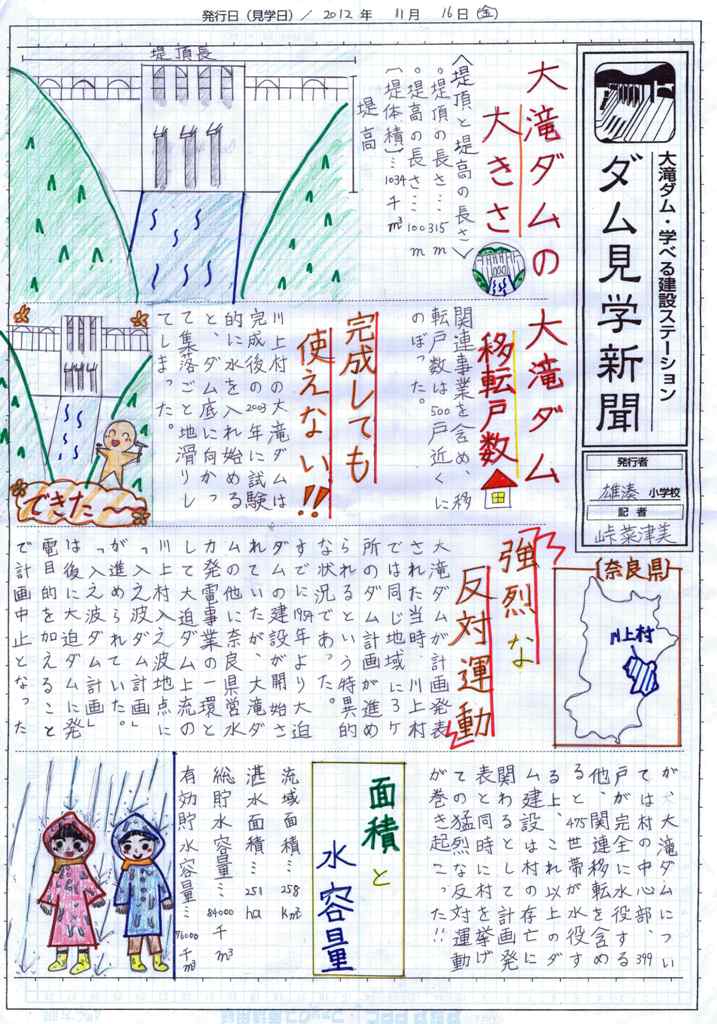 発行日（見学日）／ 2012 年 11月 16日(金)
大滝ダム・学べる建設ステーション
ダム見学新聞
発行者
雄湊 小学校
記者
峠 菜津美
大滝ダムの
大きさ
〈堤頂と堤高の長さ〉
。堤頂の長さ…315m
。堤高の長さ…100m
〔堤体積〕…1034千m³
堤頂長
堤高
大滝ダム
移転戸数
関連事業を含め、移
転戸数は500戸近くに
のぼった。
完成しても
使えない!!
川上村の大滝ダムは
完成後の2003年に試験
的に水を入れ始める
と、ダム底に向かっ
て集落ごと地滑りし
てしまった。
できた〜
〔奈良県〕
川上村
強烈な
反対運動
大滝ダムが計画発表
された当時、川上村
では同じ地域に3ヶ
所のダム計画が進め
られるという特異的
な状況であった。
すでに1954年より大迫
ダムの建設が開始さ
れていたが、大滝ダ
ムの他に奈良県営水
力発電事業の一環と
して大迫ダム上流の
川上村入之波地点に
「入之波ダム計画」
が進められていた。
「入之波ダム計画」
は後に大迫ダムに発
電目的を加えること
で計画中止となった
が、大滝ダムについ
ては村の中心部、399
戸が完全に水役する
他、関連移転を含め
ると475世帯が水役す
る上、これ以上のダ
ム建設は村の存亡に
関わるとして計画発
表と同時に村を挙げ
ての猛烈な反対運動
が巻き起こった!!
面積と
水容量
流域面積…258km²
湛水面積…251ha
総貯水容量…84000千m³
有効貯水容量…76000千m³